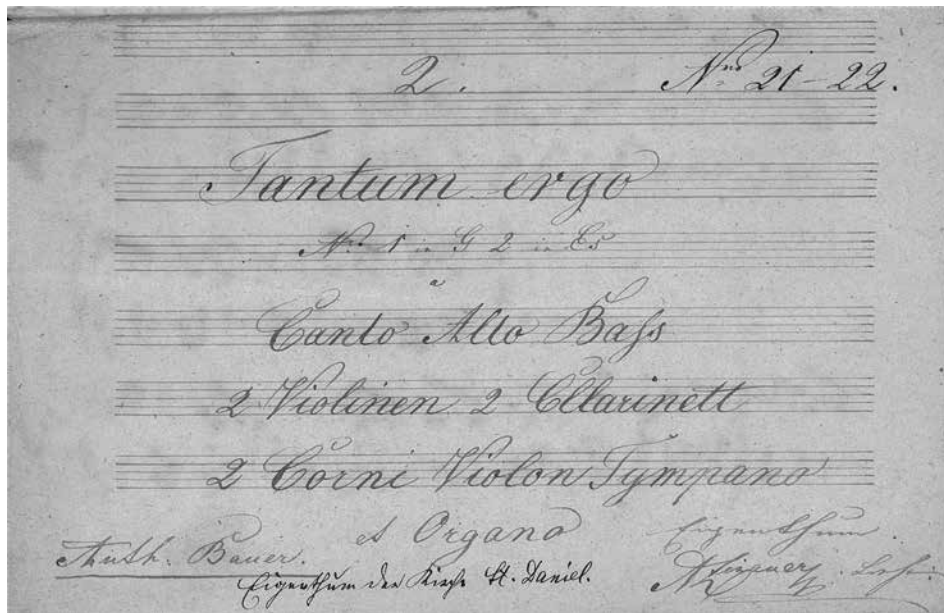 2. Nro 21-22.
Tantum ergo
Nro 1 in G 2 in Es
a
Canto Alto Bass
2 Violinen 2 Cllarinett
2 Corni Violon Tympano
et Organo Eigenthum
Auth. Bauer.
Eigenthum der Kirche St. Daniel.